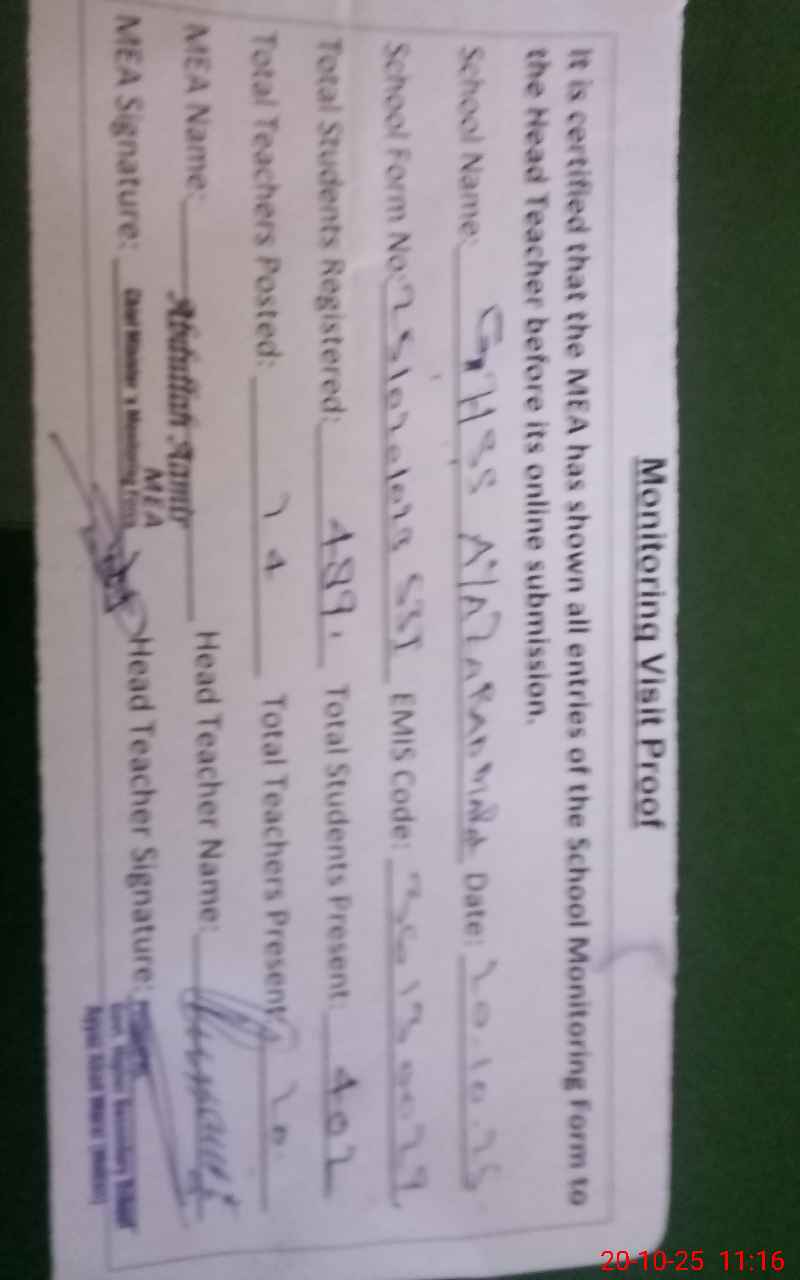 Monitoring Visit Proof
It is certified that the MEA has shown all entries of the School Monitoring Form to
the Head Teacher before its online submission.
School Name: GHSS Date: 20.10.25
School Form No: EMIS Code:
Total Students Registered: 489 Total Students Present: 402
Total Teachers Posted: 24 Total Teachers Present: 20
MEA Name: Abdullah Aamir Head Teacher Name:
MEA
MEA Signature: Chief Minister's Monitoring Force Head Teacher Signature:
20-10-25 11:16